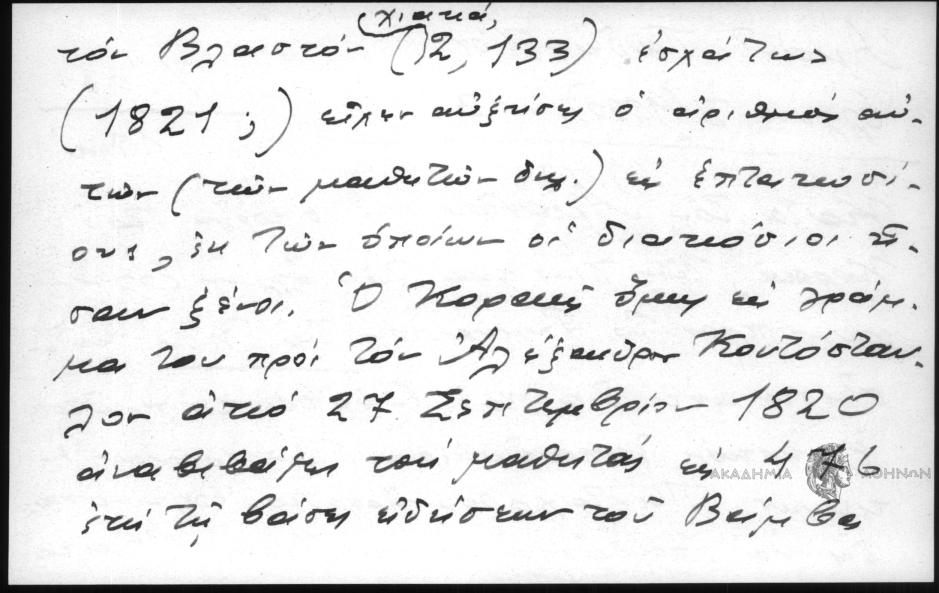 χιακά,
τόν Βλαστόν (2, 133) ἐσχάτως
(1821;) εἶχεν αὐξήσει ὁ ἀριθμός αὐ-
τῶν (τῶν μαθητῶν δηλ.) εἰς ἑπτακοσί-
ους, ἐκ τῶν ὁποίων οἱ διακόσιοι ἦ-
σαν ξένοι. Ὁ Κοραῆς ὅμως εἰς γράμ-
μα του πρός τόν Ἀλέξανδρον Κοντόσταυ-
λον ἀπό 27 Σεπτεμβρίου 1820
ἀναβιβάζει τούς μαθητάς εἰς 476
ἐπί τῇ βάσει εἰδήσεων τοῦ Βάμβα
ΑΚΑΔΗΜΙΑ ΑΘΗΝΩΝ